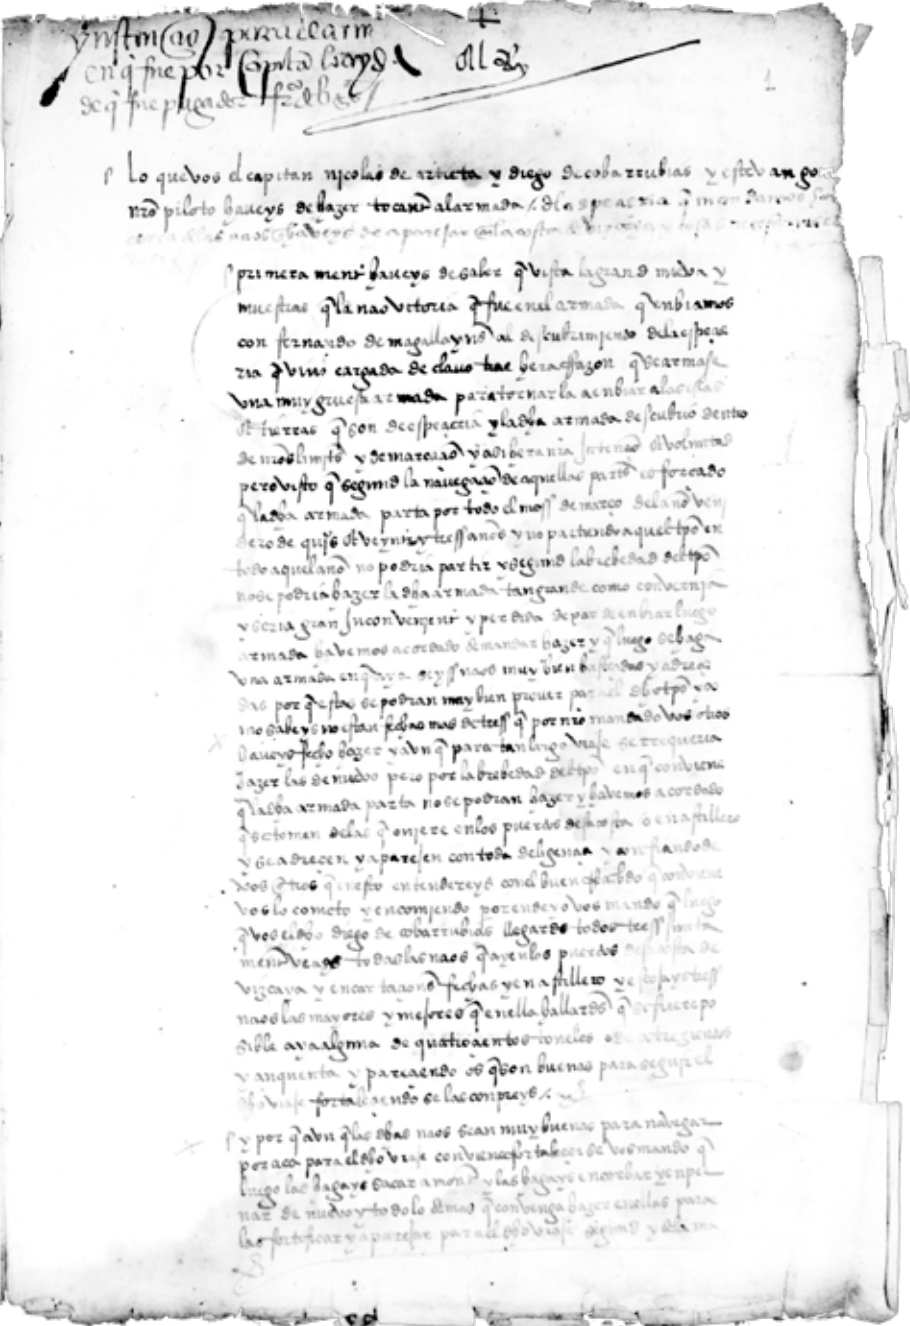 ynstruçion para el arm
en q̃ fue por capitan loaysa
de q̃ fue pagador
lo que vos el capitan nicolas de artieta y diego de cobarrubias y estevan go
nr̃o piloto haveys de hazer tocante al armada de la espeçieria q̃ mandamos
de las naos q̃ haveys de aparejar en la costa de vizcaya y cosas
primeramente haveys de saber q̃ vista la grand nueva y
muestras q̃ la nao vitoria q̃ fue en el armada q̃ enbiamos
con fernando de magallayns al descubrimiento de la espeçie
ria q̃ vino cargada de clavo trae hera Razon q̃ se armase
una muy gruesa armada para tornar la a enbiar a las islas
et tierras q̃ son de espeçieria y la dha armada descubrio dentro
de nr̃os limites y demarcaçion y asi hera nra yntençion et voluntad
pero visto q̃ segund la navegaçion de aquellas partes es forçado
q̃ la dha armada parta por todo el mes de março del año veni
dero de quis et veynte y tress años y no partiendo a aquel tpõ en
todo aquel año no podria partir y segund la brebedad del tpõ
no se podria hazer la dha armada tan grande como convernia
y seria gran ynconveniente y perdida dexar de enbiar luego
armada havemos acordado de mandar hazer y q̃ luego se haga
una armada en q̃ aya seyss naos muy bien basteçidas y adreça
das por q̃ estas se podran muy bien prover para el dho tpõ y co
mo sabeys no estan fechas mas de tress q̃ por mio mandado vos otros
haveys fecho hazer y aun q̃ para tan largo viaje se requeria
hazer las de nuebo pero por la brebedad del tpõ en q̃ conviene
q̃ la dha armada parta no se podran hazer y havemos acordado
q̃ se tomen de las q̃ oviere en los puertos desa costa o en astillero
y se adreçen y aparejen con toda deligençia y confiando de
vos otros q̃ en esto entendereys con el buen Recabdo q̃ conviene
vos lo cometo y encomiendo por ende yo vos mando q̃ luego
q̃ vos el dho diego de cobarrubias llegardes todos tress junta
mente veays todas las naos q̃ ay en los puertos desa costa de
vizcaya y encartaçiones fechas y en astillero y escojays tress
naos las mayores y mejores q̃ en ella hallardes q̃ si fuere po
sible aya alguna de quatroçientos toneles o de a trezientos
y çinquenta y pareçiendo os q̃ son buenas para seguir el
dho viaje fortaleçiendo se las conpreys
y por q̃ aun q̃ las dhas naos sean muy buenas para navegar
por aca para el dho viaje conviene fortaleçer se vos mando q̃
luego las hagays sacar a monte y las hagays encorbar y enpe
nar de nuevo y todo lo demas q̃ convenga hazer en ellas para
las fortificar y aparejar para el dho viaje segund y de la ma